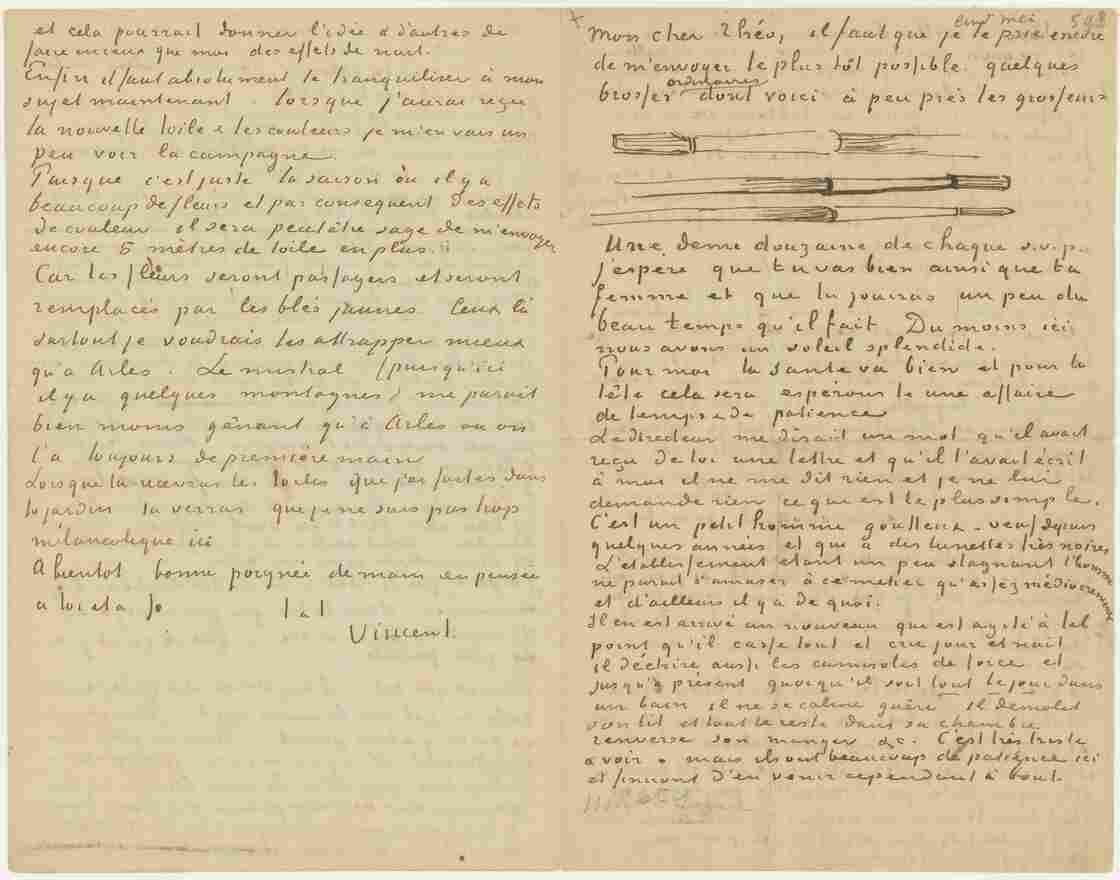 et cela pourrait donner l'idée à d'autres de
faire mieux que moi des effets de nuit.
Enfin il faut absolument te tranquiliser à mon
sujet maintenant. Lorsque j'aurai reçu
la nouvelle toile & les couleurs je m'en vais un
peu voir la campagne.
Puisque c'est juste la saison où il y a
beaucoup de fleurs et par consequent des effets
de couleur il sera peutêtre sage de m'envoyer
encore 5 mètres de toile en plus.
Car les fleurs seront passagers et seront
remplacés par les blés jaunes. Ceux là
surtout je voudrais les attrapper mieux
qu'a Arles. Le mistral (puisqu'ici
il y a quelques montagnes) me parait
bien moins gênant qu'à Arles ou on
l'a toujours de première main
Lorsque tu recevras les toiles que j'ai faites dans
le jardin tu verras que je ne suis pas trop
mélancolique ici
A bientot bonne poignée de main en pensée
a toi et a Jo t. à t.
Vincent.
598
Mon cher Théo, il faut que je te prie encore
de m'envoyer le plus tôt possible quelques
ordinaires
brosses dont voici à peu près les grosseurs
Une demi douzaine de chaque s.v.p.
j'espère que tu vas bien ainsi que ta
femme et que tu jouiras un peu du
beau temps qu'il fait Du moins ici
nous avons un soleil splendide.
Pour moi la santé va bien et pour la
tête cela sera espérons le une affaire
de temps & de patience
Le directeur me disait un mot qu'il avait
reçu de toi une lettre et qu'il t'avait écrit
à moi il ne me dit rien et je ne lui
demande rien ce qui est le plus simple.
C'est un petit homme goutteux – veuf depuis
quelques années et qui a des lunettes très noires
L'etablissement etant un peu stagnant l'homme
ne parait s'amuser à ce metier qu'assez médiocrement
et d'ailleurs il y a de quoi.
Il en est arrivé un nouveau qui est agité à tel
point qu'il casse tout et crie jour et nuit
il déchire aussi les camisoles de force et
jusqu'à présent quoiqu'il soit tout le jour dans
un bain il ne se calme guère il demolit
son lit et tout le reste dans sa chambre
renverse son manger &c. C'est très triste
a voir – mais ils ont beaucoup de patience ici
et finiront d'en venir cependant à bout.